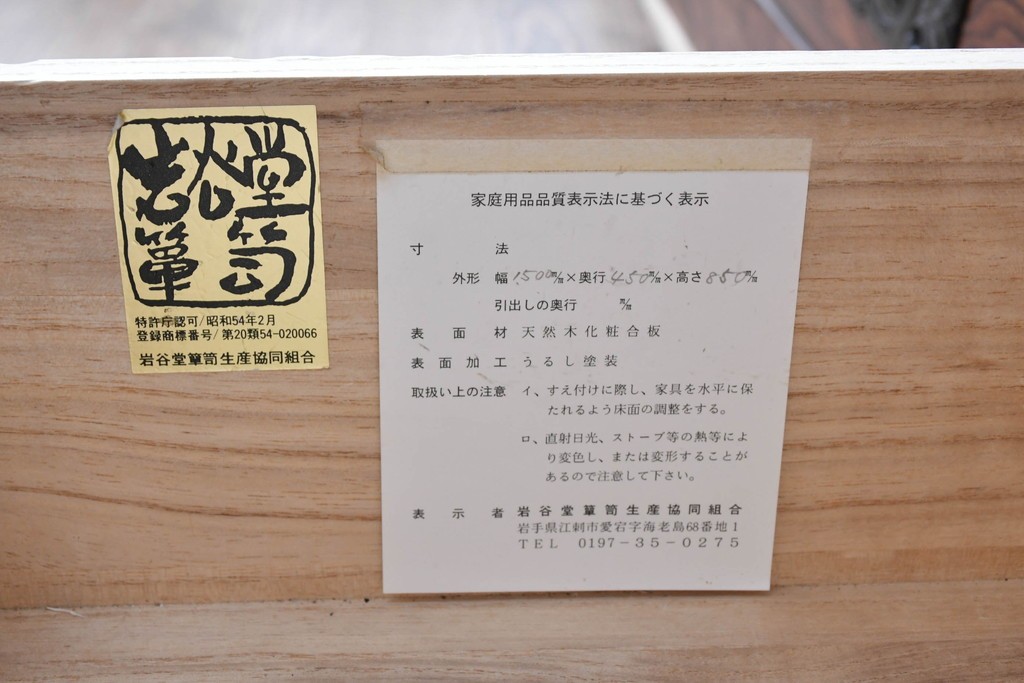 岩谷堂
簞笥
特許庁認可/昭和54年2月
登録商標番号/第20類54-020066
岩谷堂簞笥生産協同組合
家庭用品品質表示法に基づく表示
寸法
外形 幅1500m/m×奥行450m/m×高さ850m/m
引出しの奥行 m/m
表面材 天然木化粧合板
表面加工 うるし塗装
取扱い上の注意 イ、すえ付けに際し、家具を水平に保
たれるよう床面の調整をする。
ロ、直射日光、ストーブ等の熱等によ
り変色し、または変形することが
あるので注意して下さい。
表示者 岩谷堂簞笥生産協同組合
岩手県江刺市愛宕字海老島68番地1
TEL 0197-35-0275